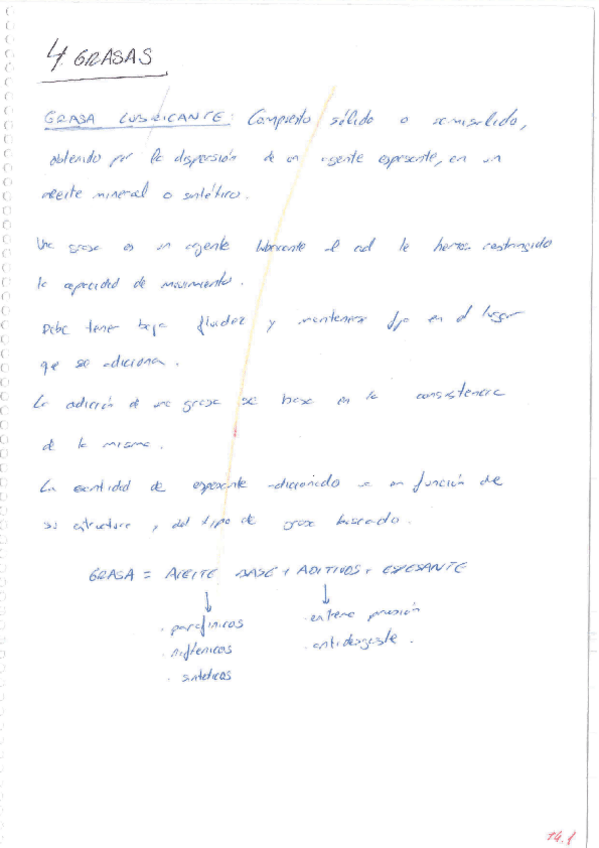 4. GRASAS
GRASA LUBRICANTE: Compuesto sólido o semisólido,
obtenido por la dispersión de un agente espesante, en un
aceite mineral o sintético.
Una grasa es un agente lubricante al cual le hemos restringido
la capacidad de movimiento.
Debe tener baja fluidez y mantenerse fija en el lugar
que se adiciona.
La adición de una grasa se basa en la consistencia
de la misma.
La cantidad de espesante adicionado va en función de
su estructura y del tipo de grasa buscado.
GRASA = ACEITE BASE + ADITIVOS + ESPESANTE
. parafínicos
. nafténicos
. sintéticos
. extrema presión
. antidesgaste.
14.1